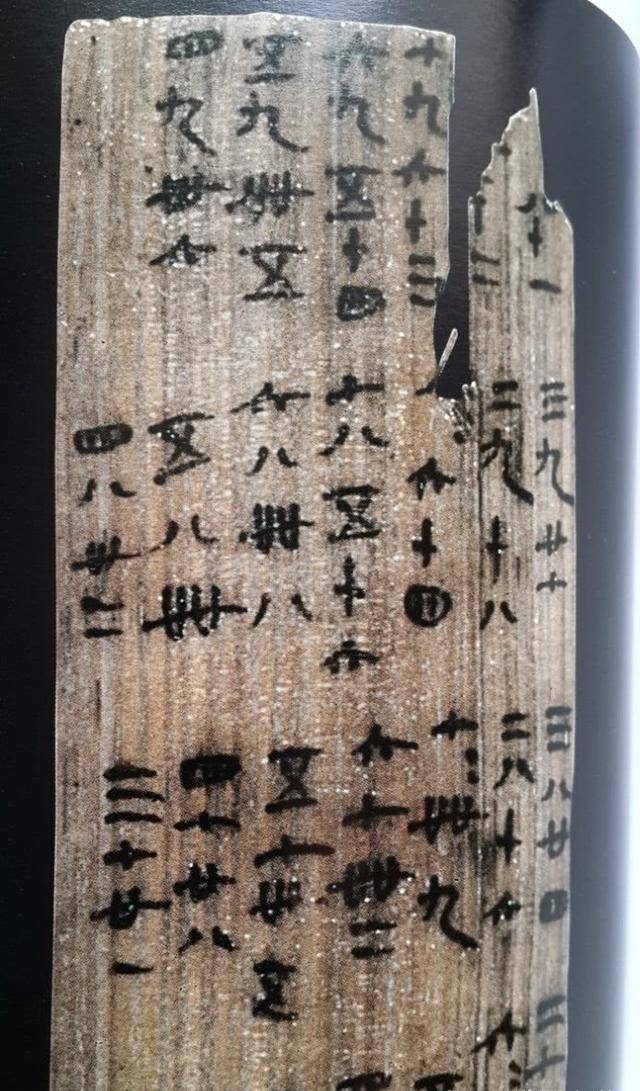 十一
二
七九六十三
六九五十四
五九卌五
四九卅六
三九廿七
二九十八
六十四
七八五十六
六八卌八
五八卌
四八卅二
三八廿四
二八十六
七七卌九
六七卌二
五七卅五
四七廿八
三七廿一